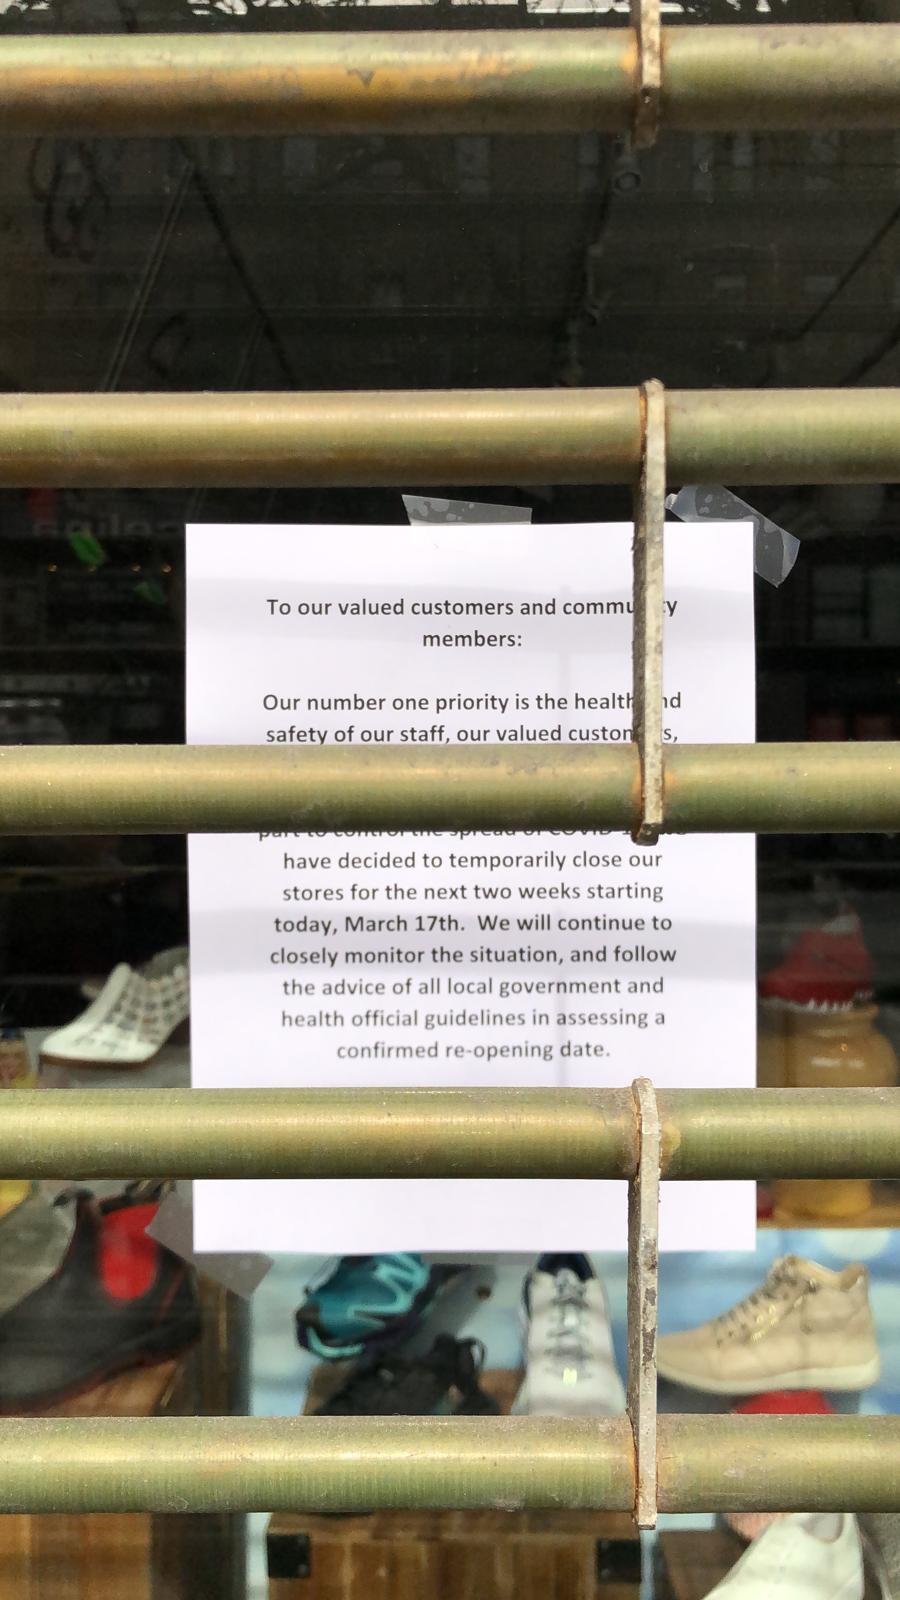 To our valued customers and community
members:
Our number one priority is the health and
safety of our staff, our valued customers,
part to control the spread of COVID
have decided to temporarily close our
stores for the next two weeks starting
today, March 17th. We will continue to
closely monitor the situation, and follow
the advice of all local government and
health official guidelines in assessing a
confirmed re-opening date.